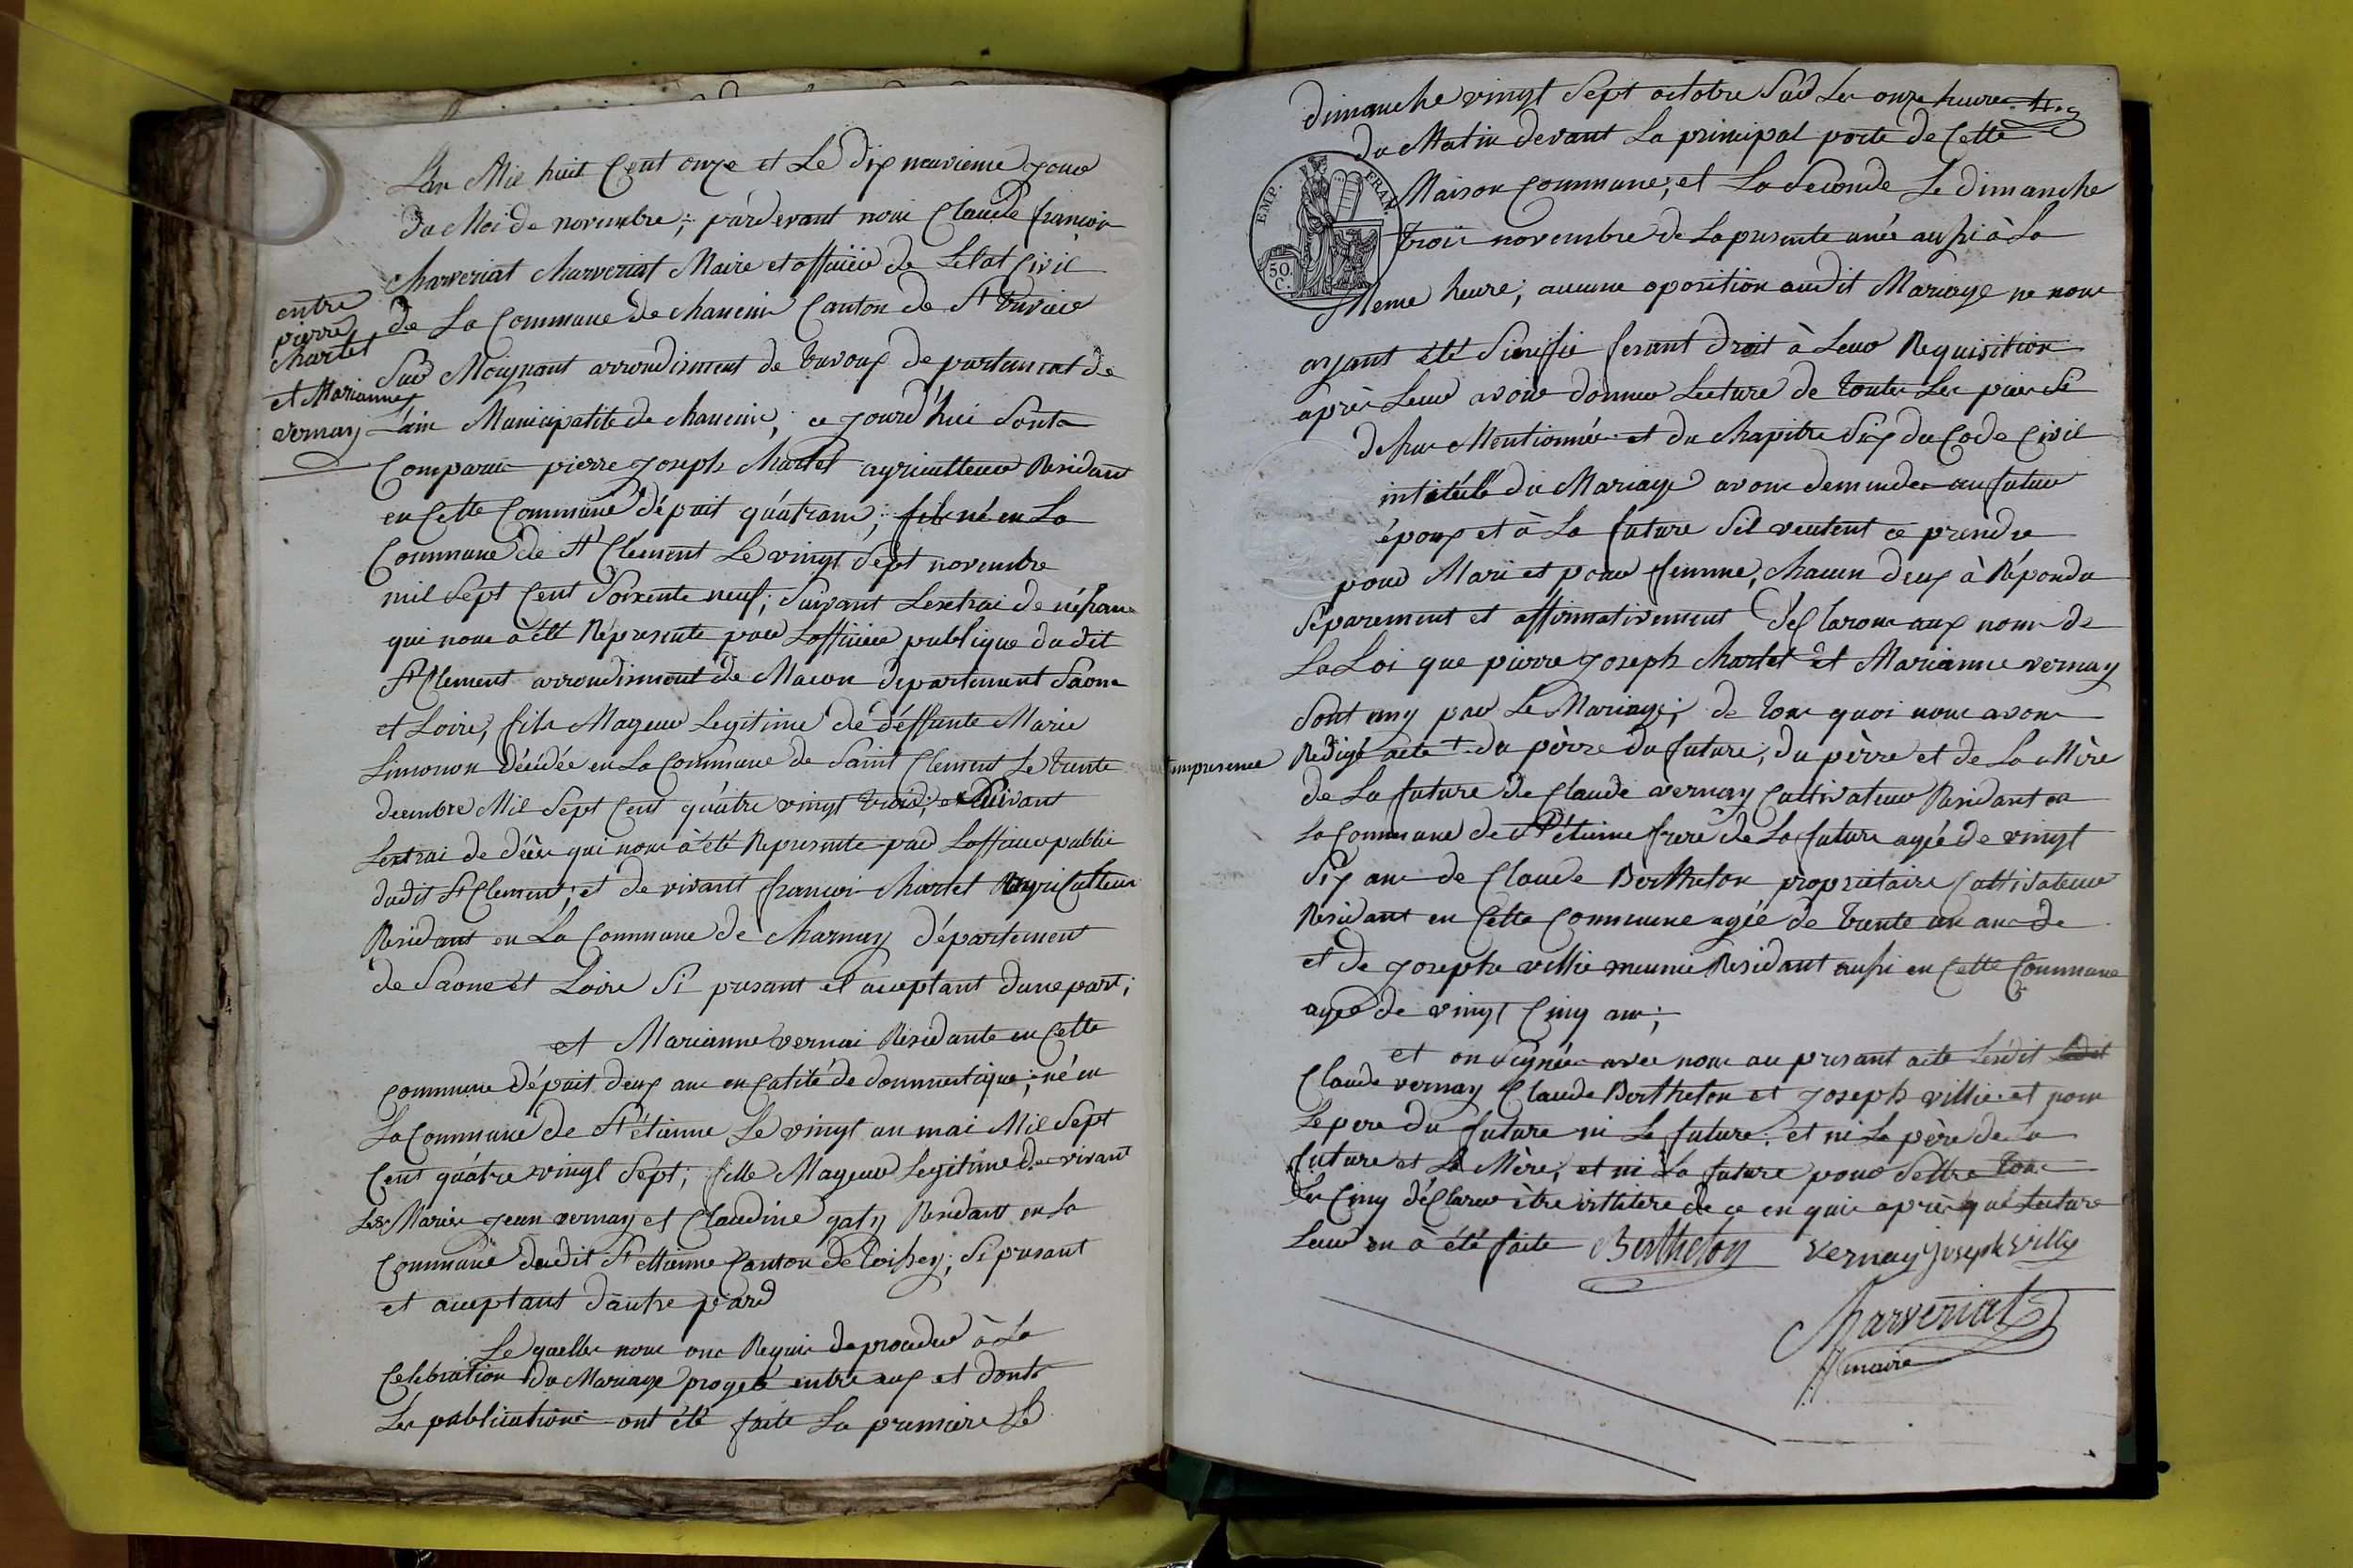 L'an Mil huit Cent onze et Le dix neuvieme jour
du Moi de novembre; pardevant nous Claude francois
charveriat charveriat Maire et officier de Letat Civil
de La Commune de chanein Canton de St trivier
Sur Moignant arrondisment de trevoux departement de
Lain Municipatité de chanein; ce jourd'hui Sont
entre
pierre
chartet
et Marianne
vernay
Comparus pierre joseph chartet agriculteur Residant
en Cette Commune dépuit quátrans; fils né en La
Commune de St Clement Le vingt Sept novembre
mil Sept Cent Soixente neuf; Suivant Lextrai de néssance
qui nous à été Réprésente par Lofficier publique dudit
St Clement arrondisment de Macon departement Saone
et Loire, fils Mageur Legitime de déffunte Marie
Limonon décédée en La Commune de Saint Clement Le trente
decembre Mil Sept Cent quátre vingt trois; Suivant
Lextrai de décès qui nous à été Represente par Lofficier public
dudit St Clement; et de vivant francois chartet agriculteur
Residant en La Commune de charnay département
de Saone et Loire Si présant et aceptant dune part;
et Marianne vernai Residante en Cette
commune dépuit deux ans en Catité de dommestique; né en
La Commune de St étienne Le vingt un mai Mil Sept
Cent quátre vingt Sept; fille Mageur Legitime de vivant
Les Mariés jean vernay et Claudine gaty Residant en La
Commune dudit St ettienne Canton de toissey; Si présant
et aceptant dautre pard
Lequelles nous ons Requis de proceder à La
Celebration du Mariage progeté entre eux et donts
Les publications ont été faite La premiere Le
dimanche vingt Sept octobre Sur Les onze heures
du Matin devant La principal porte de Cette
EMP. FRAN.
50. C.
Maison Commune; et La Seconde Le dimanche
trois novembre de La presente année aussi à La
Meme heure; aucune oposition audit Mariage ne nous
ayant été Sinifie fesant droit à Leur Requisition
après Leur avoir donner Lecture de toutes Les pieces Si
dessus Mentionnée et du chapitre Six du Code Civil
intitulé du Mariage avons demander au futur
époux et à La future Sil veulent ce prendre
pour Mari et pour femme, chacun deux à Répondu
Séparement et affirmativement déclarons aux nom de
La Loi que pierre joseph chartet et Marianne vernay
Sont uny par Le Mariage; de tous quoi nous avons
Redigé acte + du pèrre du future, du pèrre et de La Mère
enpresence
de La future de Claude vernay Cultivateur Residant en
La Commune de St étienne frere de La future agée de vingt
Six ans de Claude Bertheton propriétaire Cultivateur
Residant en Cette Commune agée de trente un ans de
et de josephe villié meunié Residant aussi en Cette Commune
agée de vingt Cinq ans;
et on Signée avec nous au présant acte Lesdit
Claude vernay Claude Bertheton et joseph villié et nom
Le pere du future ni Le future. et ni Le père de La
future et La Mère; et ni La future pour Settre tous
Les Cinq déclarer être ittitere de ce en quis après que Lecture
Leur en à été faite Berthelon Vernay Joseph villiy
Charveriat
maire